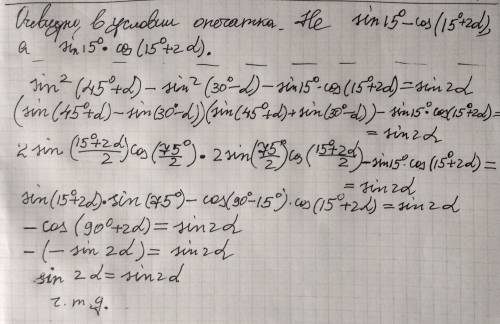 Очевидно, в условии опечатка. Не sin15°-cos(15°+2α),
а sin15°·cos(15°+2α).
sin²(45°+α)-sin²(30°-α)-sin15°·cos(15°+2α)=sin2α
(sin(45°+α)-sin(30°-α))(sin(45°+α)+sin(30°-α))-sin15°·cos(15°+2α)=
=sin2α
2sin(15°+2α/2)cos(75°/2)·2sin(75°/2)cos(15°+2α/2)-sin15°·cos(15°+2α)=
=sin2α
sin(15°+2α)·sin(75°)-cos(90°-15°)·cos(15°+2α)=sin2α
-cos(90°+2α)=sin2α
-(-sin2α)=sin2α
sin2α=sin2α
ч.т.д.